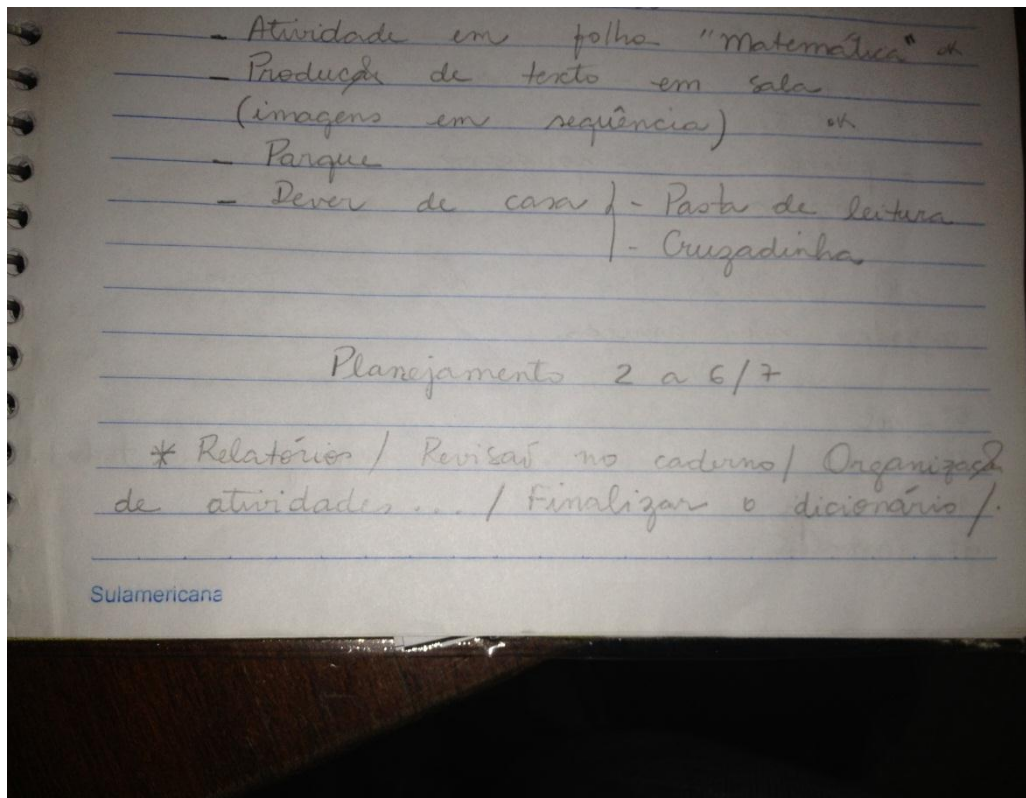 - Atividade em folha "Matemática" ok
- Produção de texto em sala
(imagens em sequência) ok
- Parque
- Dever de casa } - Pasta de leitura
- Cruzadinha
Planejamento 2 a 6/7
* Relatórios / Revisão no caderno / Organização
de atividades... / Finalizar o dicionário /.
Sulamericana